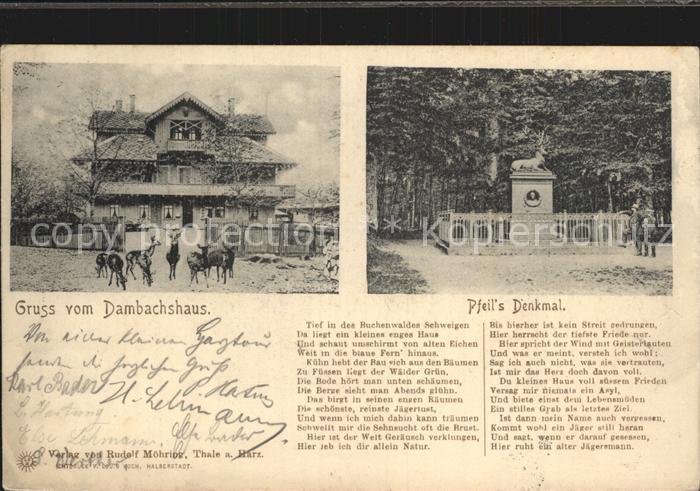 copy protection copy protection
Gruss vom Dambachshaus.
Pfeil's Denkmal.
Von einer kleinen Harztour
herzlichen Gruß
Karl Bader
H. Lehmann
L. Hartung
Else Lehmann
Verlag von Rudolf Möhring, Thale a. Harz.
HALBERSTADT.
Tief in des Buchenwaldes Schweigen
Da liegt ein kleines enges Haus
Und schaut umschirmt von alten Eichen
Weit in die blaue Fern' hinaus.
Kühn hebt der Bau sich aus den Bäumen
Zu Füssen liegt der Wälder Grün,
Die Bode hört man unten schäumen,
Die Berge sieht man Abends glühn.
Das birgt in seinen engen Räumen
Die schönste, reinste Jägerlust,
Und wenn ich mich dahin kann träumen
Schwellt mir die Sehnsucht oft die Brust.
Hier ist der Welt Geräusch verklungen,
Hier leb ich dir allein Natur.
Bis hierher ist kein Streit gedrungen,
Hier herrscht der tiefste Friede nur.
Hier spricht der Wind mit Geisterlauten
Und was er meint, versteh ich wohl;
Sag ich auch nicht, was sie vertrauten,
Ist mir das Herz doch davon voll.
Du kleines Haus voll süssem Frieden
Versag mir niemals ein Asyl,
Und biete einst dem Lebensmüden
Ein stilles Grab als letztes Ziel.
Ist dann mein Name auch vergessen,
Kommt wohl ein Jäger still heran
Und sagt, wenn er darauf gesessen,
Hier ruht ein alter Jägersmann.